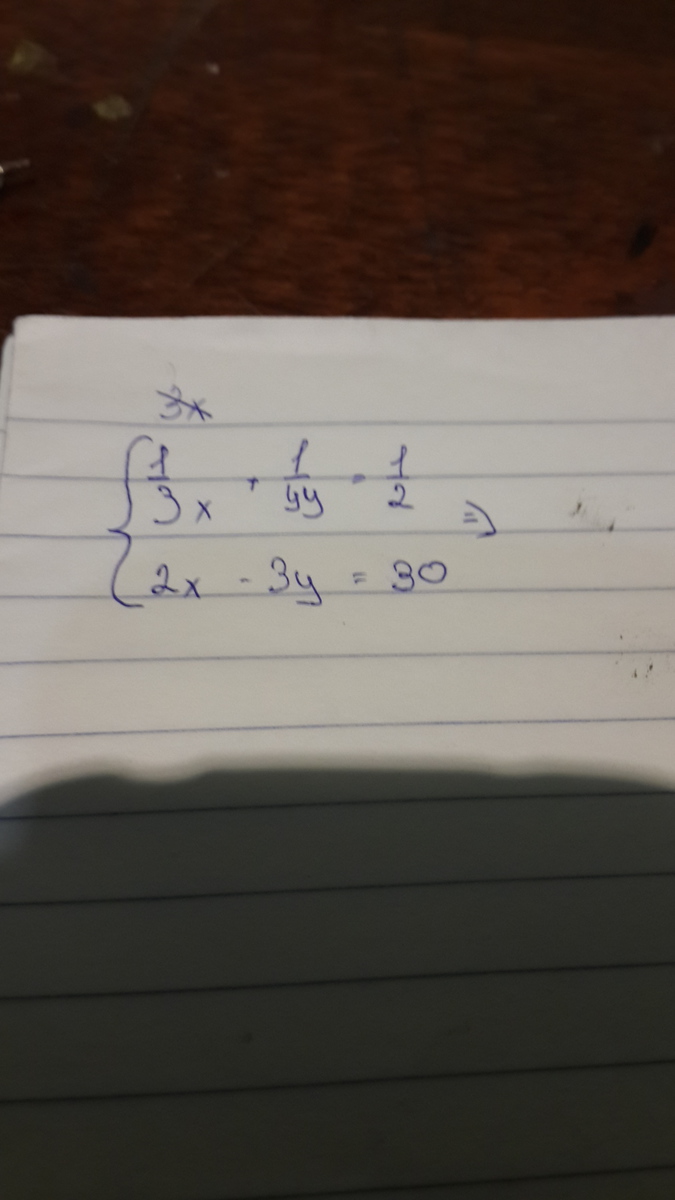 3x
{ 1/3x + 1/4y = 1/2 =>
2x - 3y = 30